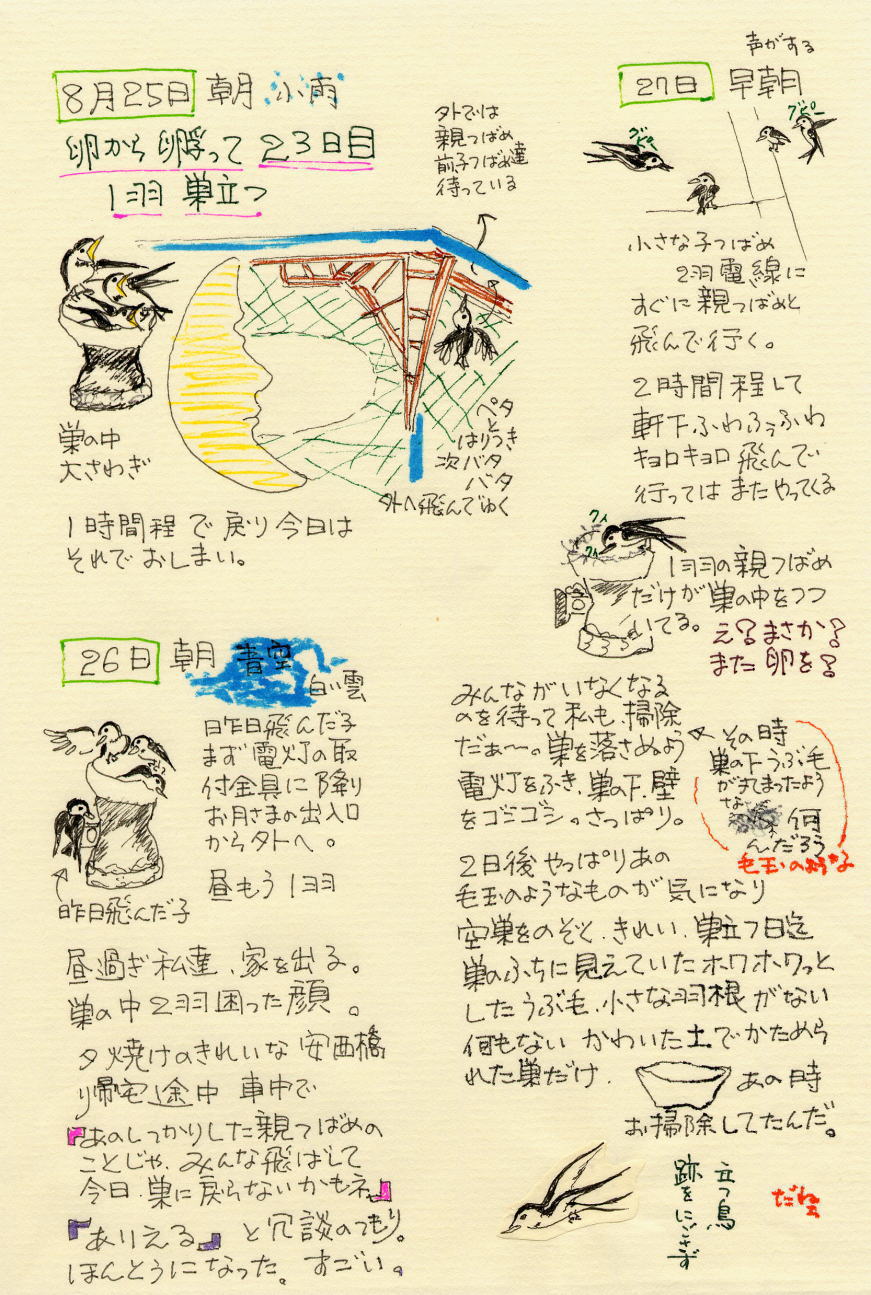 8月25日 朝 小雨
卵から 孵って 23日目
1羽 巣立つ
外では
親つばめ
前子つばめ達
待っている
巣の中
大さわぎ
ペタ
と
はりつき
次 バタ
バタ
外へ飛んでゆく
1時間程で戻り今日は
それでおしまい。
26日 朝 青空
白い雲
昨日飛んだ子
まず電灯の取
付金具に降り
お月さまの出入口
から外へ。
昼もう1羽
昨日飛んだ子
昼過ぎ私達、家を出る。
巣の中2羽困った顔。
夕焼けのきれいな 安西橋
り帰宅途中 車中で
『あのしっかりした親つばめの
ことじゃ、みんな飛ばして
今日、巣に戻らないかもネ』
『ありえる』と冗談のつもり。
ほんとうになった。すごい。
27日 早朝
声がする
グピー
グピー
小さな子つばめ
2羽電線に
すぐに親つばめと
飛んで行く。
2時間程して
軒下ふわふわふわ
キョロキョロ飛んで
行ってはまたやってくる
クイ
クイ
1羽の親つばめ
だけが巣の中をつつ
いてる。
え？まさか？
また卵を？
みんながいなくなる
のを待って私も、掃除
だぁ〜。巣を落さぬよう
電灯をふき、巣の下、壁
をゴシゴシ。さっぱり。
その時
巣の下うぶ毛
がすてまったよう
な
何
んだろう
毛玉のような
2日後やっぱりあの
毛玉のようなものが気になり
空巣をのぞく、きれい、巣立つ日迄
巣のふちに見えていたホワホワっと
したうぶ毛、小さな羽根がない
何もない かわいた土でかためら
れた巣だけ。
あの時
お掃除してたんだ。
立つ鳥
跡をにごさず
だねぇ